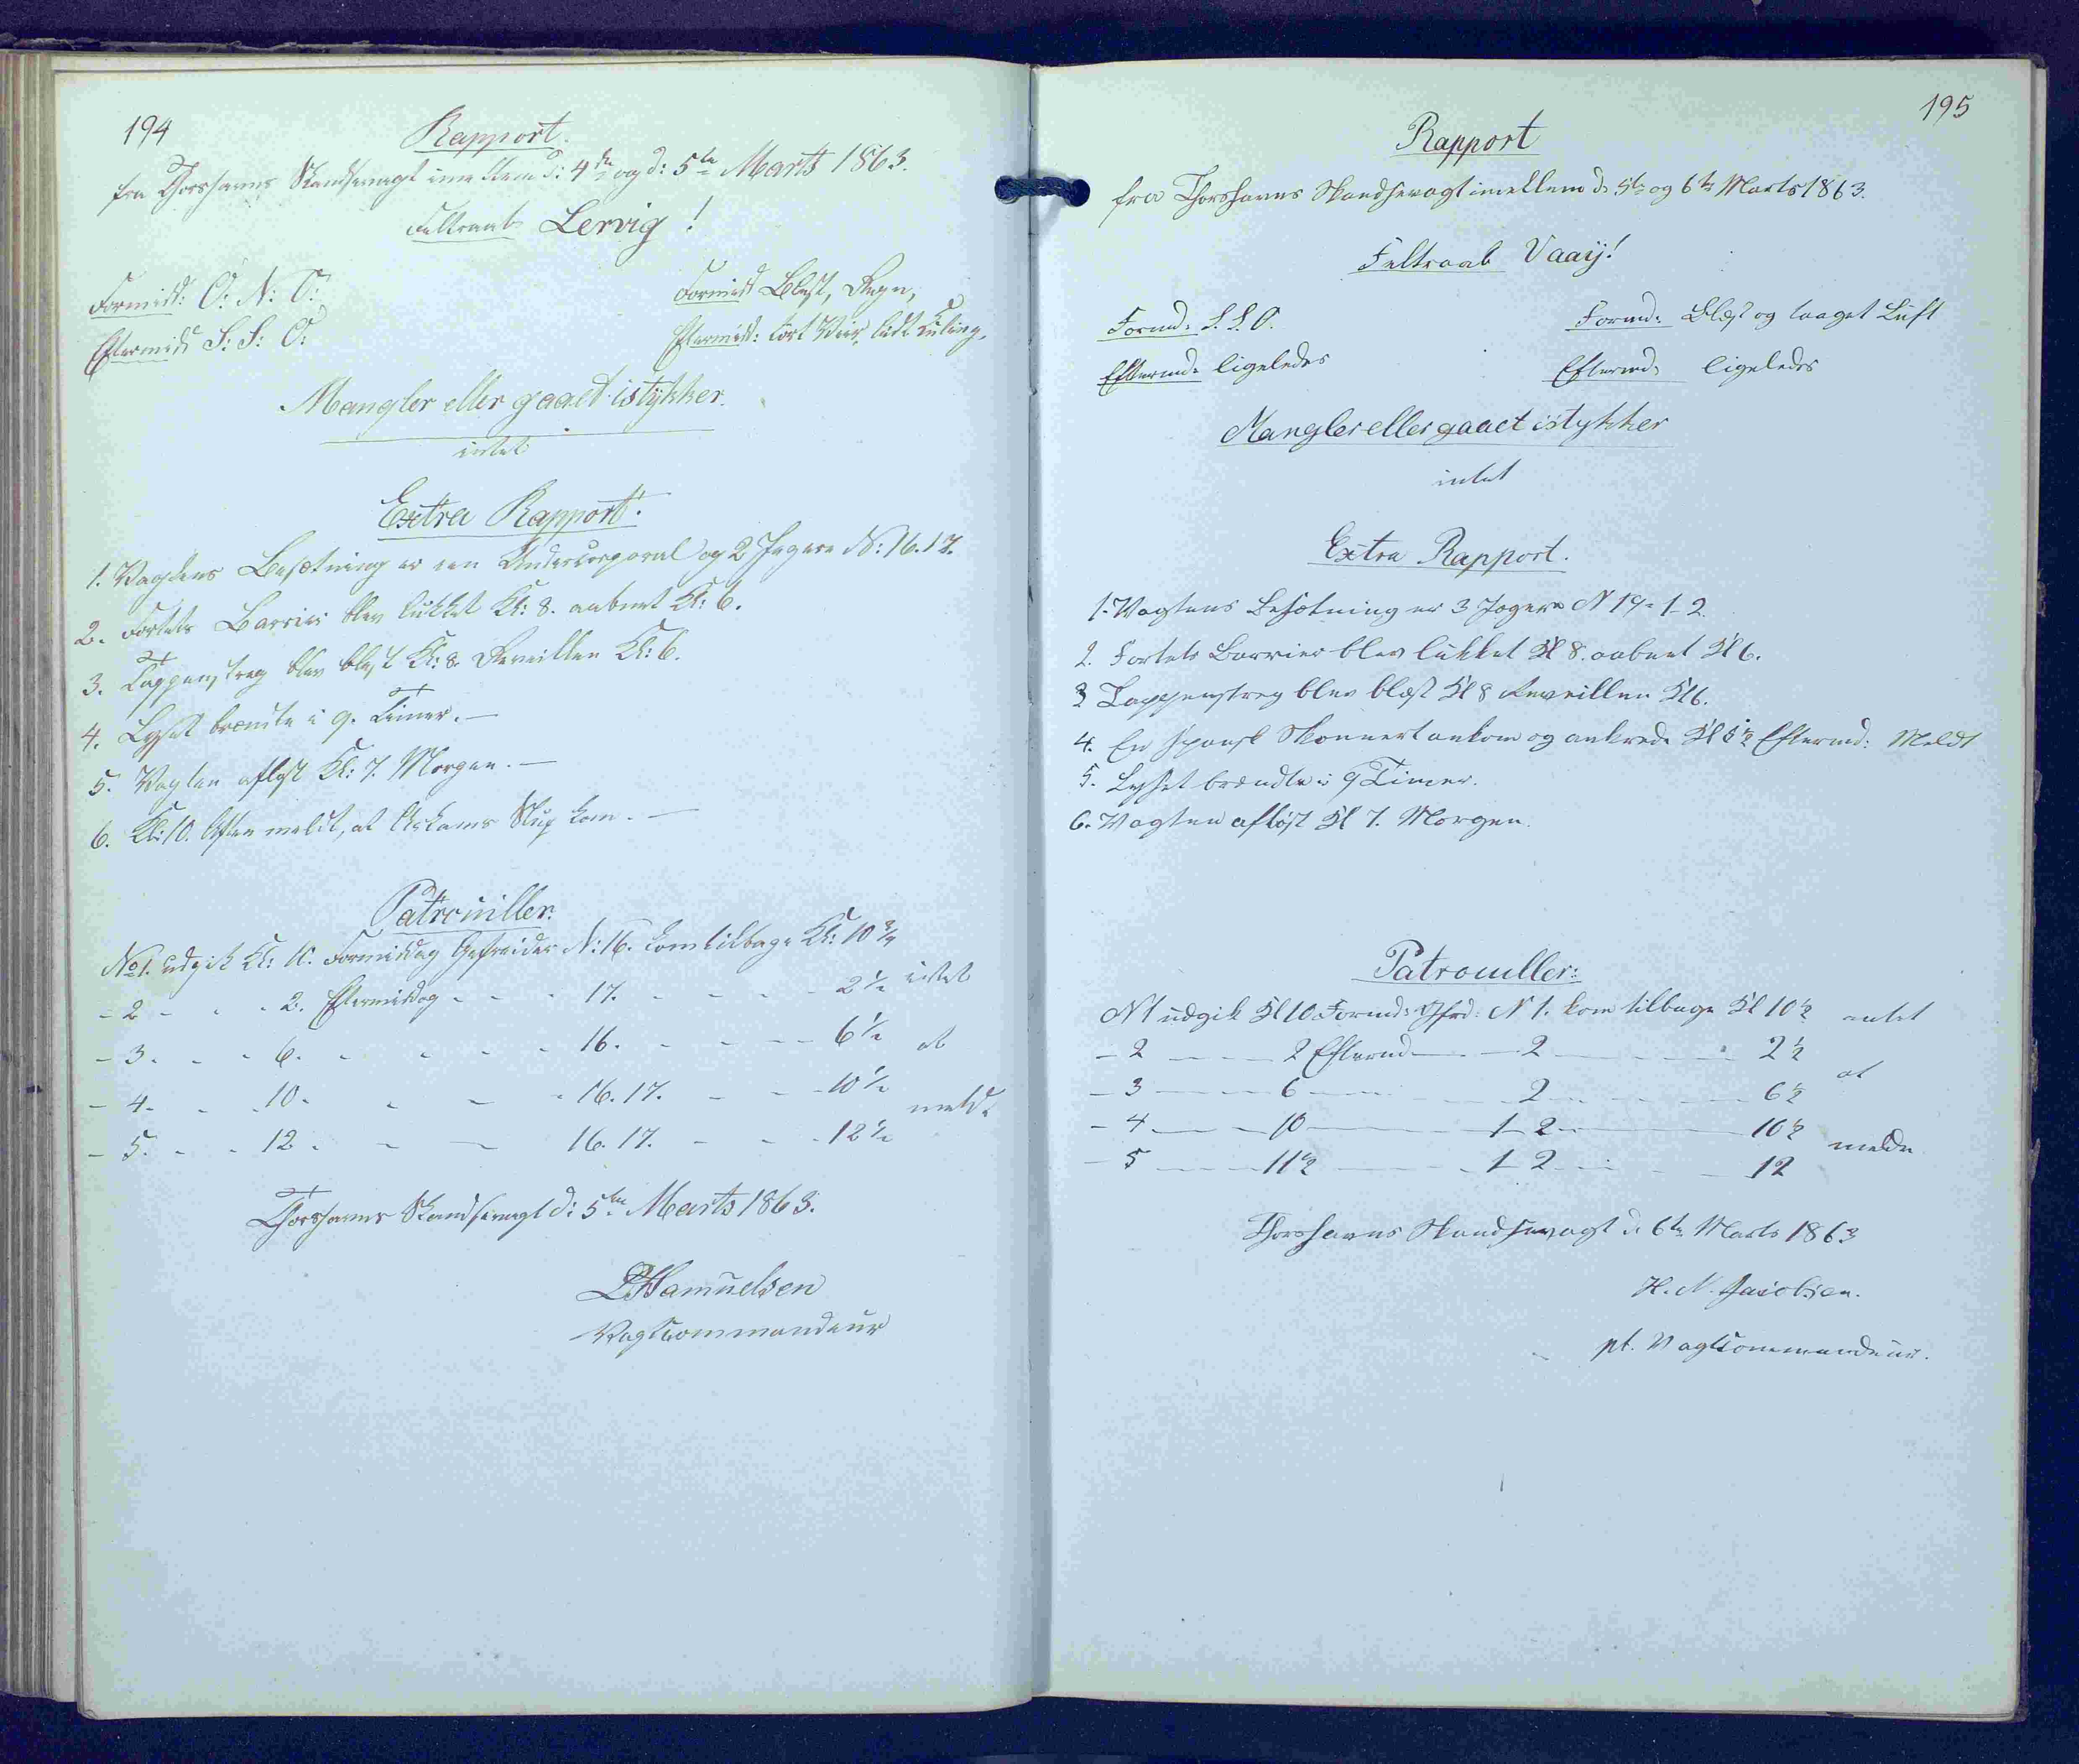 194
Rapport.
fra Thorshavns Skandsevagt imellem d: 4de og d: 5te Marts 1863.
Feltraab Lervig!
Formidd: O: N: O: Formidd Blæst, Regn,
Eftermidd S: S: O: Eftermidd: tort Veir, lidt Kuling.
Mangler eller gaaet istykker.
intet
Extra Rapport.
1. Vagtens Besætning er een Undercorporal og 2 Jægere N: 16. 17.
2. Fortets Barrier blev lukket Kl: 8. aabnet Kl: 6.
3. Tappenstreg blev blæst Kl: 8. Reveillen Kl: 6.
4. Lyset brændte i 9. Timer. —
5. Vagten afløst Kl: 7. Morgen. —
6. Kl: 10. Aften meldt, at Slup kom. —
Patrouiller.
No 1. udgik Kl: 10. Formiddag Gefreider N: 16. kom tilbage Kl: 10 3/4
- 2 - - - 2. Eftermiddag - - - 17. - - - - 2 1/2 intet
- 3. - - 6. - - - - 16. - - - - 6 1/2 at
- 4. - - 10. - - - 16. 17. - - - 10 1/2
melde
- 5. - - 12 - - - 16. 17. - - - 12 1/2
Thorshavns Skandsevagt d: 5te Marts 1863.
Samuelsen
Vagtcommandeur
195
Rapport
fra Thorshavns Skandsevagt imellem d. 5te og 6te Marts 1863.
Feltraab Vaaij!
Formd: S. S. O. Formd: Blæst og taaget Luft
Eftermd: ligeledes Eftermd: ligeledes
Mangler eller gaaet istykker
intet
Extra Rapport.
1. Vagtens Besætning er 3 Jægere N 19 - 1 - 2.
2. Fortets Barrier blev lukket Kl 8. aabnet Kl 6.
3 Tappenstreg blev blæst Kl 8 Reveillen Kl 6.
4. En spansk Skonnert ankom og ankrede Kl 5 1/2 Eftermd: Meldt
5. Lyset brændte i 9 Timer.
6. Vagten afløst Kl 7. Morgen.
Patrouiller:
N 1 udgik Kl 10 Formd: Gfrd: N 1. kom tilbage Kl 10 1/2 intet
- 2 — — 2 Eftermd — — 2 — — — 2 1/2
- 3 — — 6 — — — 2 — — — 6 1/2 at
- 4 — — 10 — — — 1 - 2 — — — 10 1/2
melde
- 5 — — 11 1/2 — — — 1 - 2 — — — 12
Thorshavns Skandsevagt d. 6te Marts 1863
H. N. Jacobsen.
pt. Vagtcommandeur.